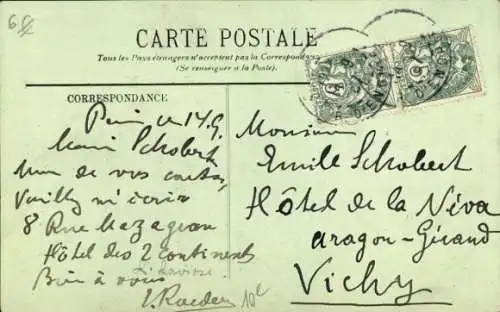 6
CARTE POSTALE
Tous les Pays étrangers n'acceptent pas la Correspondance
(Se renseigner à la Poste).
CORRESPONDANCE
Paris le 14.9.
Schobert
de vos cartes,
Veuillez m'écrire
8 Rue Mazagran
Hôtel des 2 continents
Bien à vous
E. Roeder
10e
Monsieur
Emile Schobert
Hôtel de la Niva
aragon-Girand
Vichy
5
5